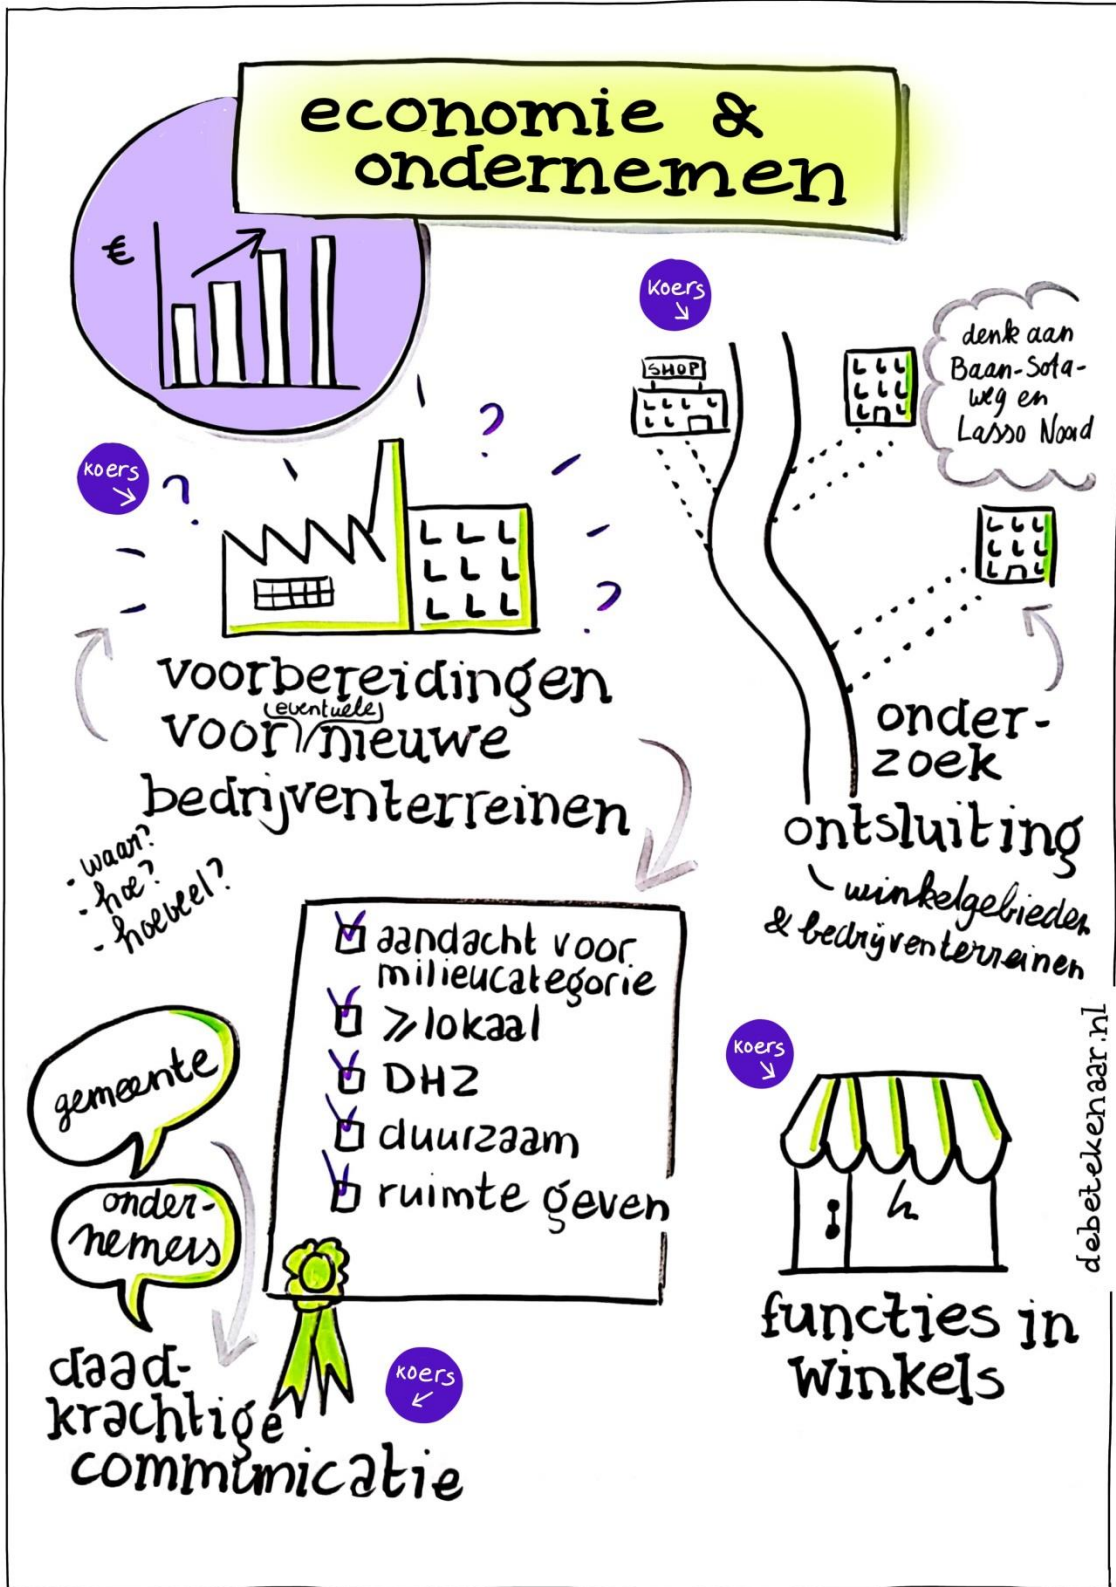 economie &
ondernemen
€
Koers
SHOP
denk aan
Baan-Sota-
weg en
Lasso Noord
Koers
?
?
?
voorbereidingen
voor (eventuele) nieuwe
bedrijventerreinen
- waar?
- hoe?
- hoeveel?
onder-
zoek
ontsluiting
- winkelgebieden
& bedrijventerreinen
aandacht voor
milieucategorie
⩾ lokaal
DHZ
duurzaam
ruimte geven
gemeente
onder-
nemers
daad-
krachtige
communicatie
Koers
Koers
functies in
winkels
debetekenaar.nl